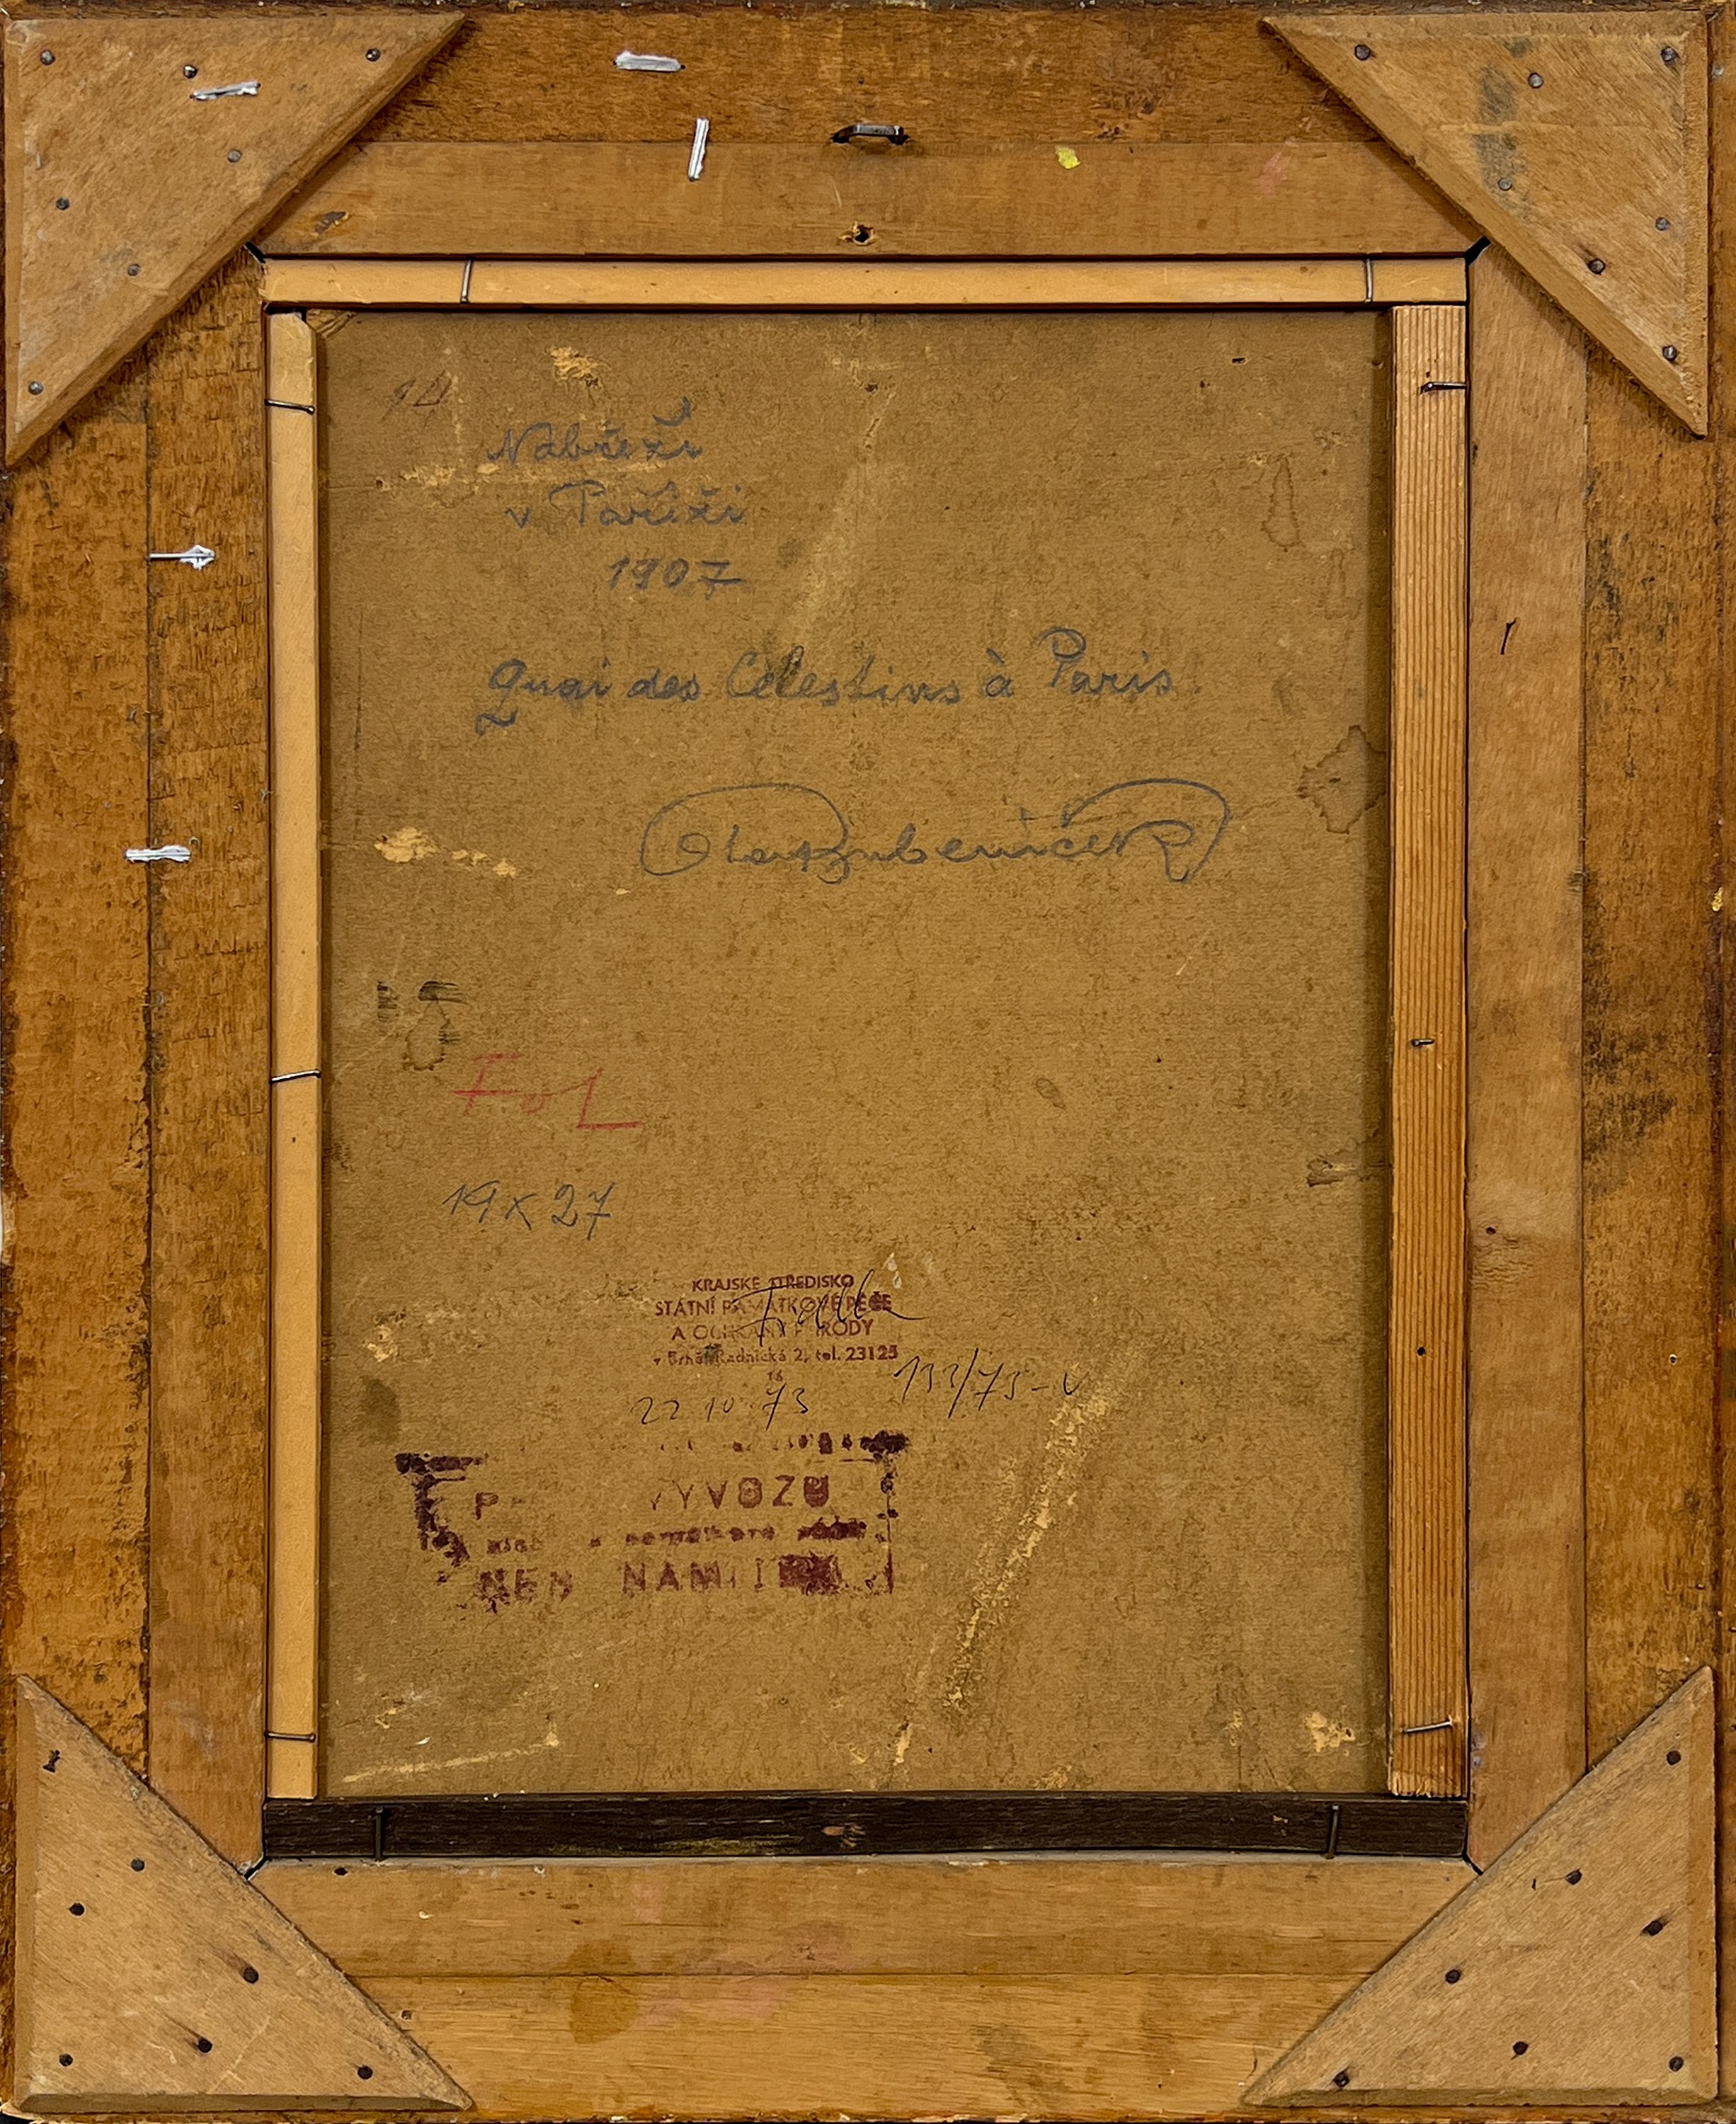 14
Nábřeží
v Paříži
1907
Quai des Célestins à Paris
Ota Bubeníček
19 x 27
KRAJSKÉ STŘEDISKO
STÁTNÍ PAMÁTKOVÉ PÉČE
A OCHRANY PŘÍRODY
v Brně, Radnická 2, tel. 23125
16
22 10 73
VÝVOZU
památkové péče
NENÍ NÁMITEK